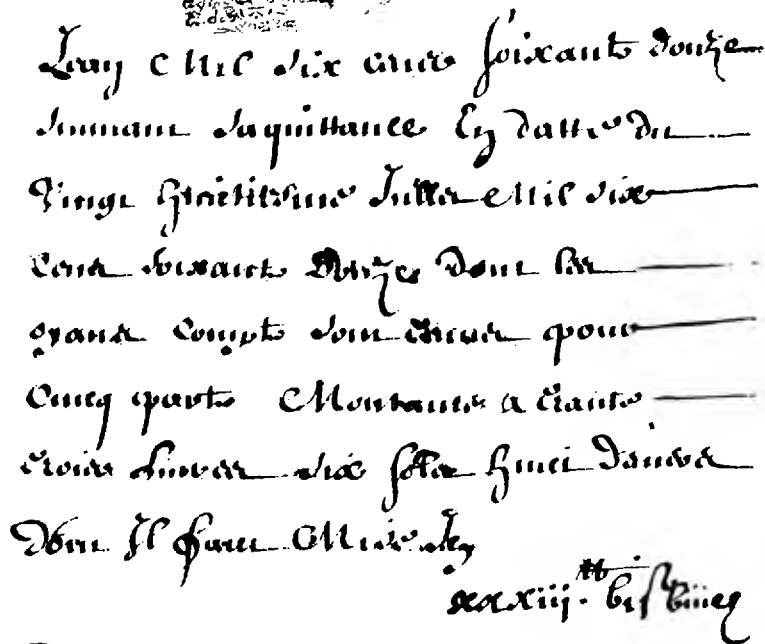 Lan Mil six cens soixante douze
suivant sa quittance En datte du
vingt huictiesme Juillet Mil six
Cens soixante Douze dont les
grands Compte sont
Cincq partz Montantes a trante
trois livres six solz huict deniers
dont Il faict Mise Icy
xxxiij ₶. vj s viij d